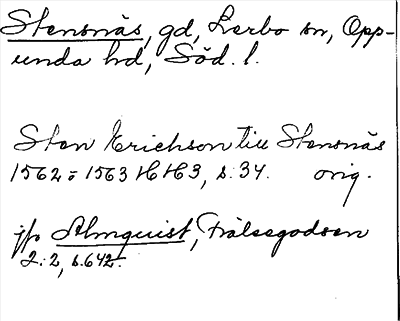 Stensnäs, gd, Lerbo sn, Opp-
unda hd, Söd. l.
Sten Erichson till Stensnäs
1562 = 1563 HH3, s. 34. orig.
jfr Almquist, Frälsegodsen
2:2, s. 642.